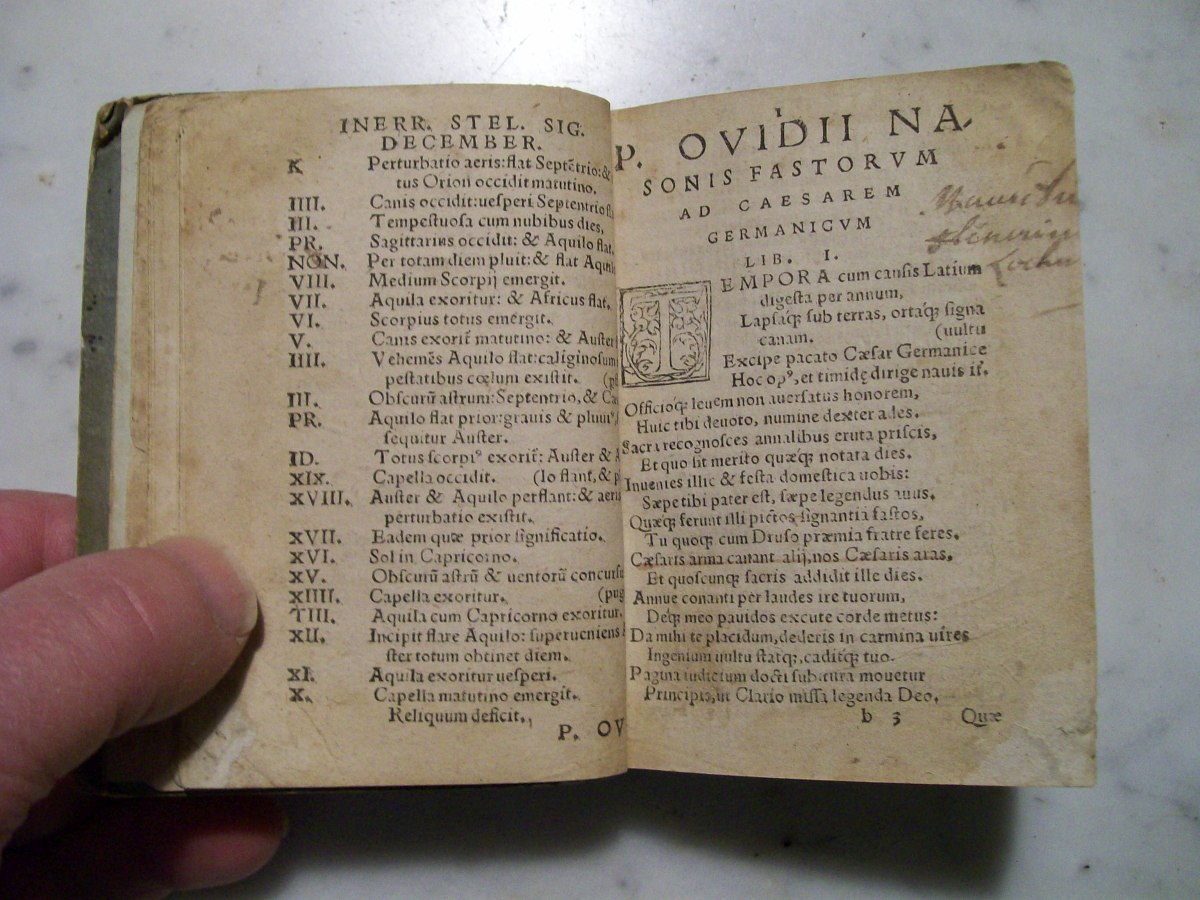 INERR. STEL. SIG.
DECEMBER.
K Perturbatio aeris: flat Septētrio: &
tus Orion occidit matutino.
IIII. Canis occidit: uesperi Septentrio
III. Tempestuosa cum nubibus dies,
PR. Sagittarius occidit: & Aquilo flat.
NON. Per totam diem pluit: & flat Aquilo
VIII. Medium Scorpij emergit.
VII. Aquila exoritur: & Africus flat.
VI. Scorpius totus emergit.
V. Canis exorit̃ matutino: & Auster
IIII. Vehemēs Aquilo flat: caliginosum
pestatibus cœlum existit.
III. Obscurū astrum: Septentrio, &
PR. Aquilo flat prior: grauis & pluuiꝰ,
sequitur Auster.
ID. Totus scorpiꝰ exorit̃: Auster &
XIX. Capella occidit. (lo flant, &
XVIII. Auster & Aquilo perflant: & aeris
perturbatio existit.
XVII. Eadem quæ prior significatio.
XVI. Sol in Capricorno.
XV. Obscurū astrū & uentorū concursu
XIIII. Capella exoritur. (pug
TIII. Aquila cum Capricorno exoritur.
XII. Incipit flare Aquilo: superueniens
ster totum obtinet diem.
XI. Aquila exoritur uesperi.
X. Capella matutino emergit.
Reliquum deficit.
P. OV
P. OVIDII NA
SONIS FASTORVM
AD CAESAREM
GERMANICVM
LIB. I.
TEMPORA cum causis Latium
digesta per annum,
Lapsaq; sub terras, ortaq; signa
canam. (uultu
Excipe pacato Cæsar Germanice
Hoc opꝰ, et timidę dirige nauis it̃.
Officioq; leuem non auersatus honorem,
Huic tibi deuoto, numine dexter ades.
Sacra recognosces annalibus eruta priscis,
Et quo sit merito quæq; notata dies.
Inuenies illic & festa domestica uobis:
Sæpe tibi pater est, sæpe legendus auus.
Quæq; ferunt illi pictos signantia fastos,
Tu quoq; cum Druso præmia fratre feres.
Cæsaris arma canant alij, nos Cæsaris aras,
Et quoscunq; sacris addidit ille dies.
Annue conanti per laudes ire tuorum,
Deq; meo pauidos excute corde metus:
Da mihi te placidum, dederis in carmina uires
Ingenium uultu statq;, caditq; tuo.
Pagina iudicium docti subitura mouetur
Principis, ut Clario missa legenda Deo.
b 3 Quæ